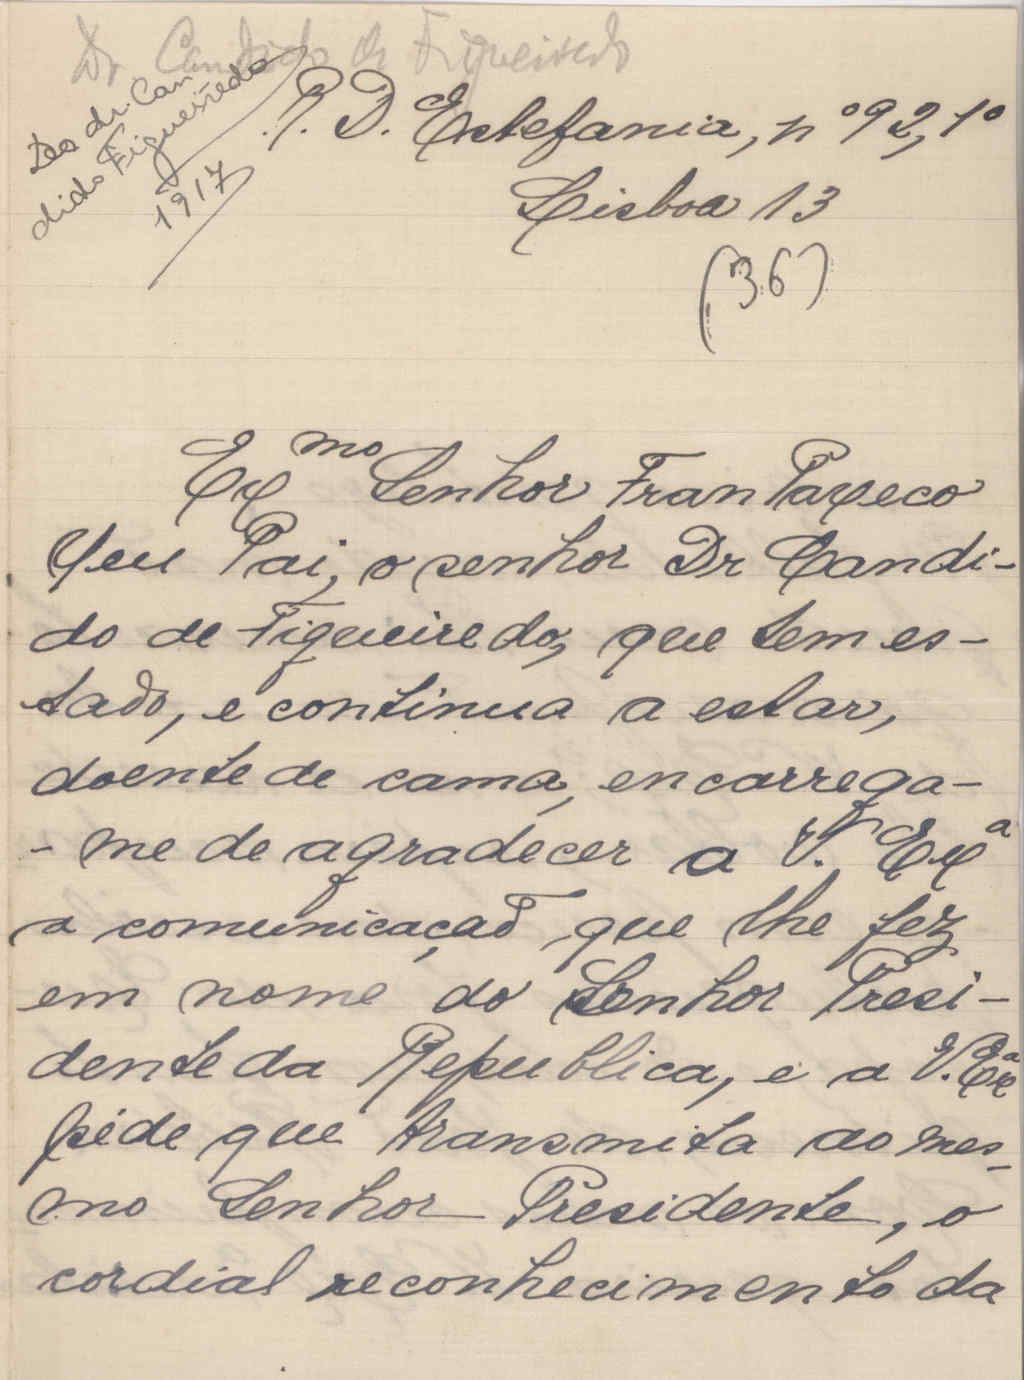 Dr Candido de Figueiredo
Do dr. Can
dido Figueiredo
1917
R. D. Estefania, nº 92, 1º
Lisboa 13
(36)
Exmo Senhor Fran Paxeco
Meu Pai, o senhor Dr Candi-
do de Figueiredo, que tem es-
tado, e continua a estar,
doente de cama, encarrega-
-me de agradecer a V. Exª
a comunicação que lhe fez
em nome do Senhor Presi-
dente da Republica, e a V. Exª
pede que transmita ao mes-
mo Senhor Presidente, o
cordial reconhecimento da